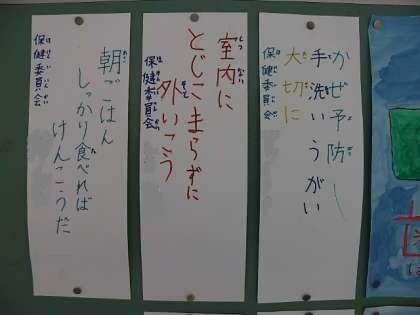 かぜ予防し
手洗いうがい
大切に
保健委員会
室内に
とじこまらずに
外いこう
保健委員会
朝ごはん
しっかり食べれば
けんこうだ
保健委員会
歯